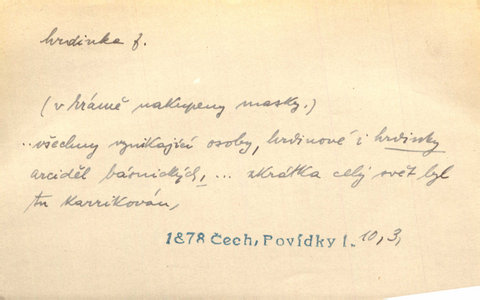 hrdinka f.
(v krámě nakupeny masky.)
..všechny vynikající osoby, hrdinové i hrdinky
arciděl básnických, ... zkrátka celý svět byl
tu karrikován,
1878 Čech, Povídky I. 10, 3,